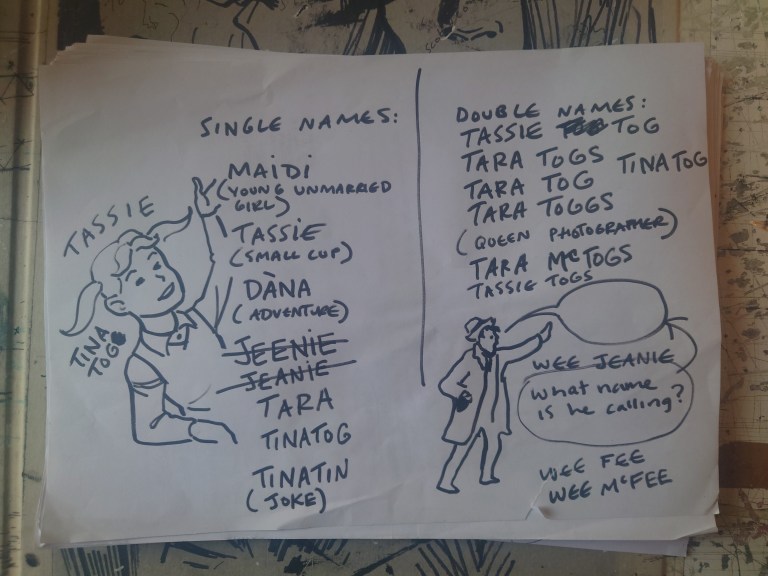 SINGLE NAMES:
MAIDI
(YOUNG UNMARRIED
GIRL)
TASSIE
(SMALL CUP)
DÀNA
(ADVENTURE)
JEENIE
JEANIE
TARA
TINATOG
TINATIN
(JOKE)
TASSIE
TINA
TOG
DOUBLE NAMES:
TASSIE TOG
TARA TOGS
TINA TOG
TARA TOG
TARA TOGGS
(QUEEN PHOTOGRAPHER)
TARA McTOGS
TASSIE TOGS
WEE JEANIE
What name
is he calling?
WEE FEE
WEE McFEE